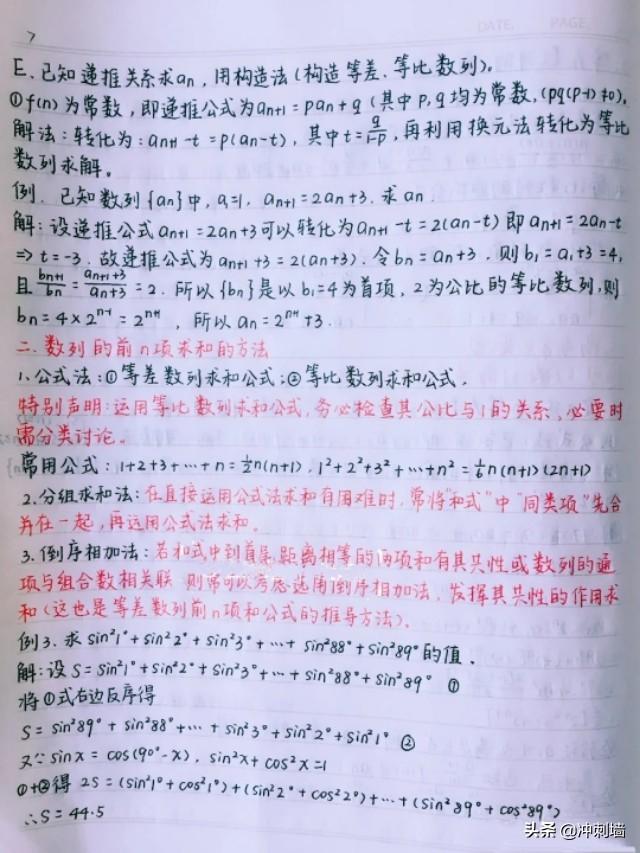 DATE. PAGE.
7
E、已知递推关系求an,用构造法(构造等差、等比数列)。
①f(n)为常数,即递推公式为an+1=pan+q(其中p,q均为常数,(pq(p-1)≠0)。
解法:转化为:an+1-t=p(an-t),其中t=q/1-p,再利用换元法转化为等比
数列求解。
例. 已知数列{an}中,a1=1,an+1=2an+3.求an.
解:设递推公式an+1=2an+3可以转化为an+1-t=2(an-t)即an+1=2an-t
=>t=-3.故递推公式为an+1+3=2(an+3).令bn=an+3.则b1=a1+3=4,
且bn+1/bn=an+1+3/an+3=2.所以{bn}是以b1=4为首项,2为公比的等比数列,则
bn=4×2ⁿ⁻¹=2ⁿ⁺¹,所以an=2ⁿ⁺¹+3.
二.数列的前n项求和的方法
1.公式法:①等差数列求和公式;②等比数列求和公式.
特别声明:运用等比数列求和公式,务必检查其公比与1的关系,必要时
需分类讨论。
常用公式:1+2+3+…+n=½n(n+1).1²+2²+3²+…+n²=⅙n(n+1)(2n+1)
2.分组求和法:在直接运用公式法求和有困难时,常将“和式”中“同类项”先合
并在一起,再运用公式法求和。
3.倒序相加法:若和式中到首尾距离相等的两项和有其共性或数列的通
项与组合数相关联 则常可以考虑选用倒序相加法,发挥其共性的作用求
和(这也是等差数列前n项和公式的推导方法)。
例3.求sin²1°+sin²2°+sin²3°+…+sin²88°+sin²89°的值.
解:设S=sin²1°+sin²2°+sin²3°+…+sin²88°+sin²89° ①
将①式右边反序得
S=sin²89°+sin²88°+…+sin²3°+sin²2°+sin²1° ②
又∵sinx=cos(90°-x),sin²x+cos²x=1
①+②得 2S=(sin²1°+cos²1°)+(sin²2°+cos²2°)+…+(sin²89°+cos²89°)
∴S=44.5
头条 @冲刺墙